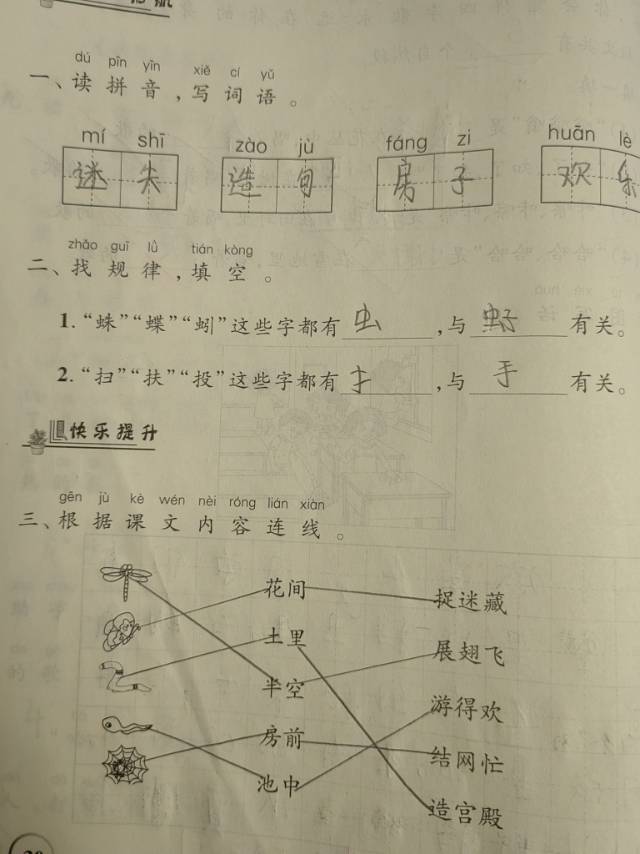 dú pīn yīn xiě cí yǔ
一、读拼音，写词语。
mí shī zào jù fáng zi huān lè
迷失 造句 房子 欢乐
zhǎo guī lǜ tián kòng
二、找规律，填空。
1.“蛛”“蝶”“蚓”这些字都有虫，与有关。
2.“扫”“扶”“投”这些字都有扌，与手有关。
快乐提升
gēn jù kè wén nèi róng lián xiàn
三、根据课文内容连线。
花间 捉迷藏
土里 展翅飞
半空 游得欢
房前 结网忙
池中 造宫殿